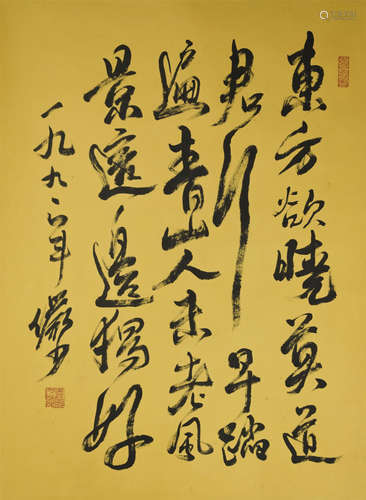 東方欲曉莫道
君行早踏
遍青山人未老風
景這邊獨好
一九九年儼少